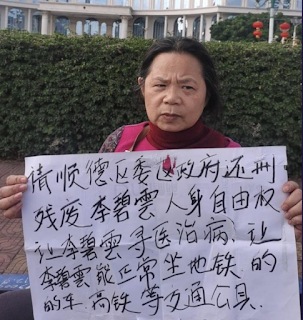 请顺德区委区政府还刑
残废李碧雲人身自由权
让李碧雲寻医治病、让
李碧雲能正常坐地铁、的
的车、高铁等交通公具.